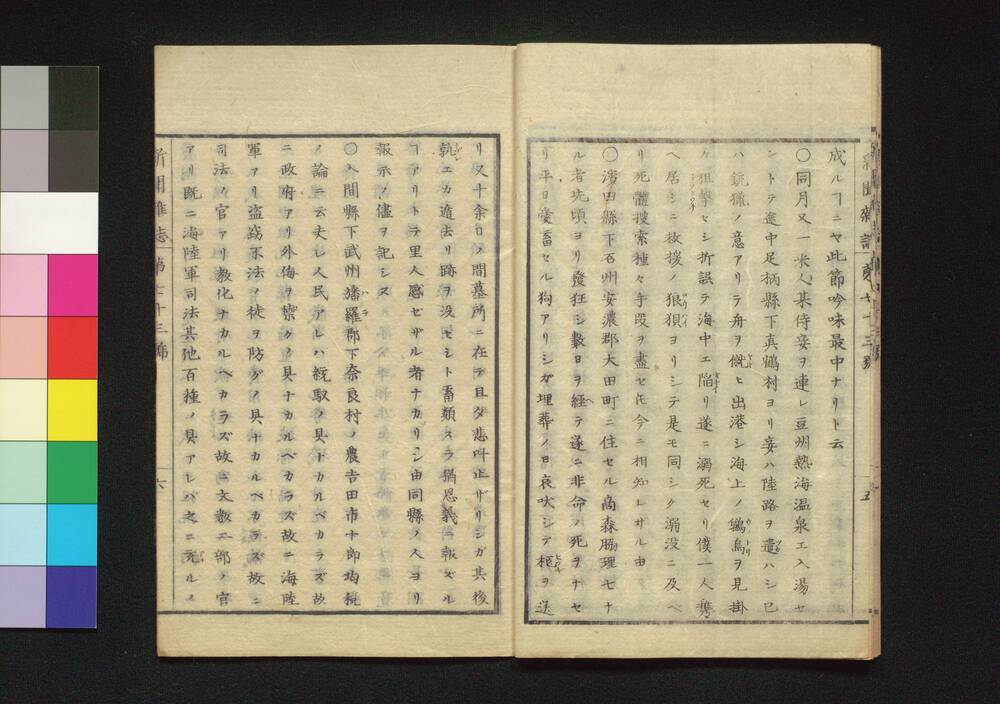 成ルヿニヤ此節吟味最中ナリト云
〇同月又一米人某侍妾ヲ連レ豆州熱海温泉エ入湯セ
シトテ途中足柄縣下真鶴村ヨリ妾ハ陸路ヲ遣ハシ己
ハ銃猟ノ意アリテ舟ヲ僦ヒ出港シ海上ノ鵜鳥ヲ見掛
ケ狙撃セシ折誤テ海中エ陥リ遂ニ溺死セリ僕一人携
ヘ居シニ救援ノ狼狽ヨリシテ是モ同シク溺没ニ及ヘ
リ死體捜索種々手段ヲ盡セ𪜈今ニ相知レサル由
〇濱田縣下石州安濃郡大田町ニ住セル高森脇理七ナ
ル者先頃ヨリ發狂シ數日ヲ經テ遂ニ非命ノ死ヲナセ
リ平日愛畜セル狗アリシガ埋葬ノ日哀吠シテ柩ヲ送
リ又十余日ノ間墓所ニ在テ日夕悲叫止ザリシガ其後
孰エカ遁去リ跡ヲ没セシト畜類スラ猶恩義ニ報スル
ヿアリトテ里人感ゼザル者ナカリシ由同縣ノ人ヨリ
報示ノ儘ヲ記シヌ
〇入間縣下武州旛羅郡下奈良村ノ農吉田市十郎均税
ノ論ニ云夫レ人民アレハ統馭ノ具ナカルベカラズ故
ニ政府アリ外侮ヲ禦クノ具ナカルベカラズ故ニ海陸
軍アリ盗竊不法ノ徒ヲ防グノ具ナカルベカラズ故ニ
司法ノ官アリ教化ナカルベカラズ故ニ文教ニ部ノ官
アリ既ニ海陸軍司法其他百種ノ具アレバ之ニ充ルノ
新聞雑志 第七十三號 六